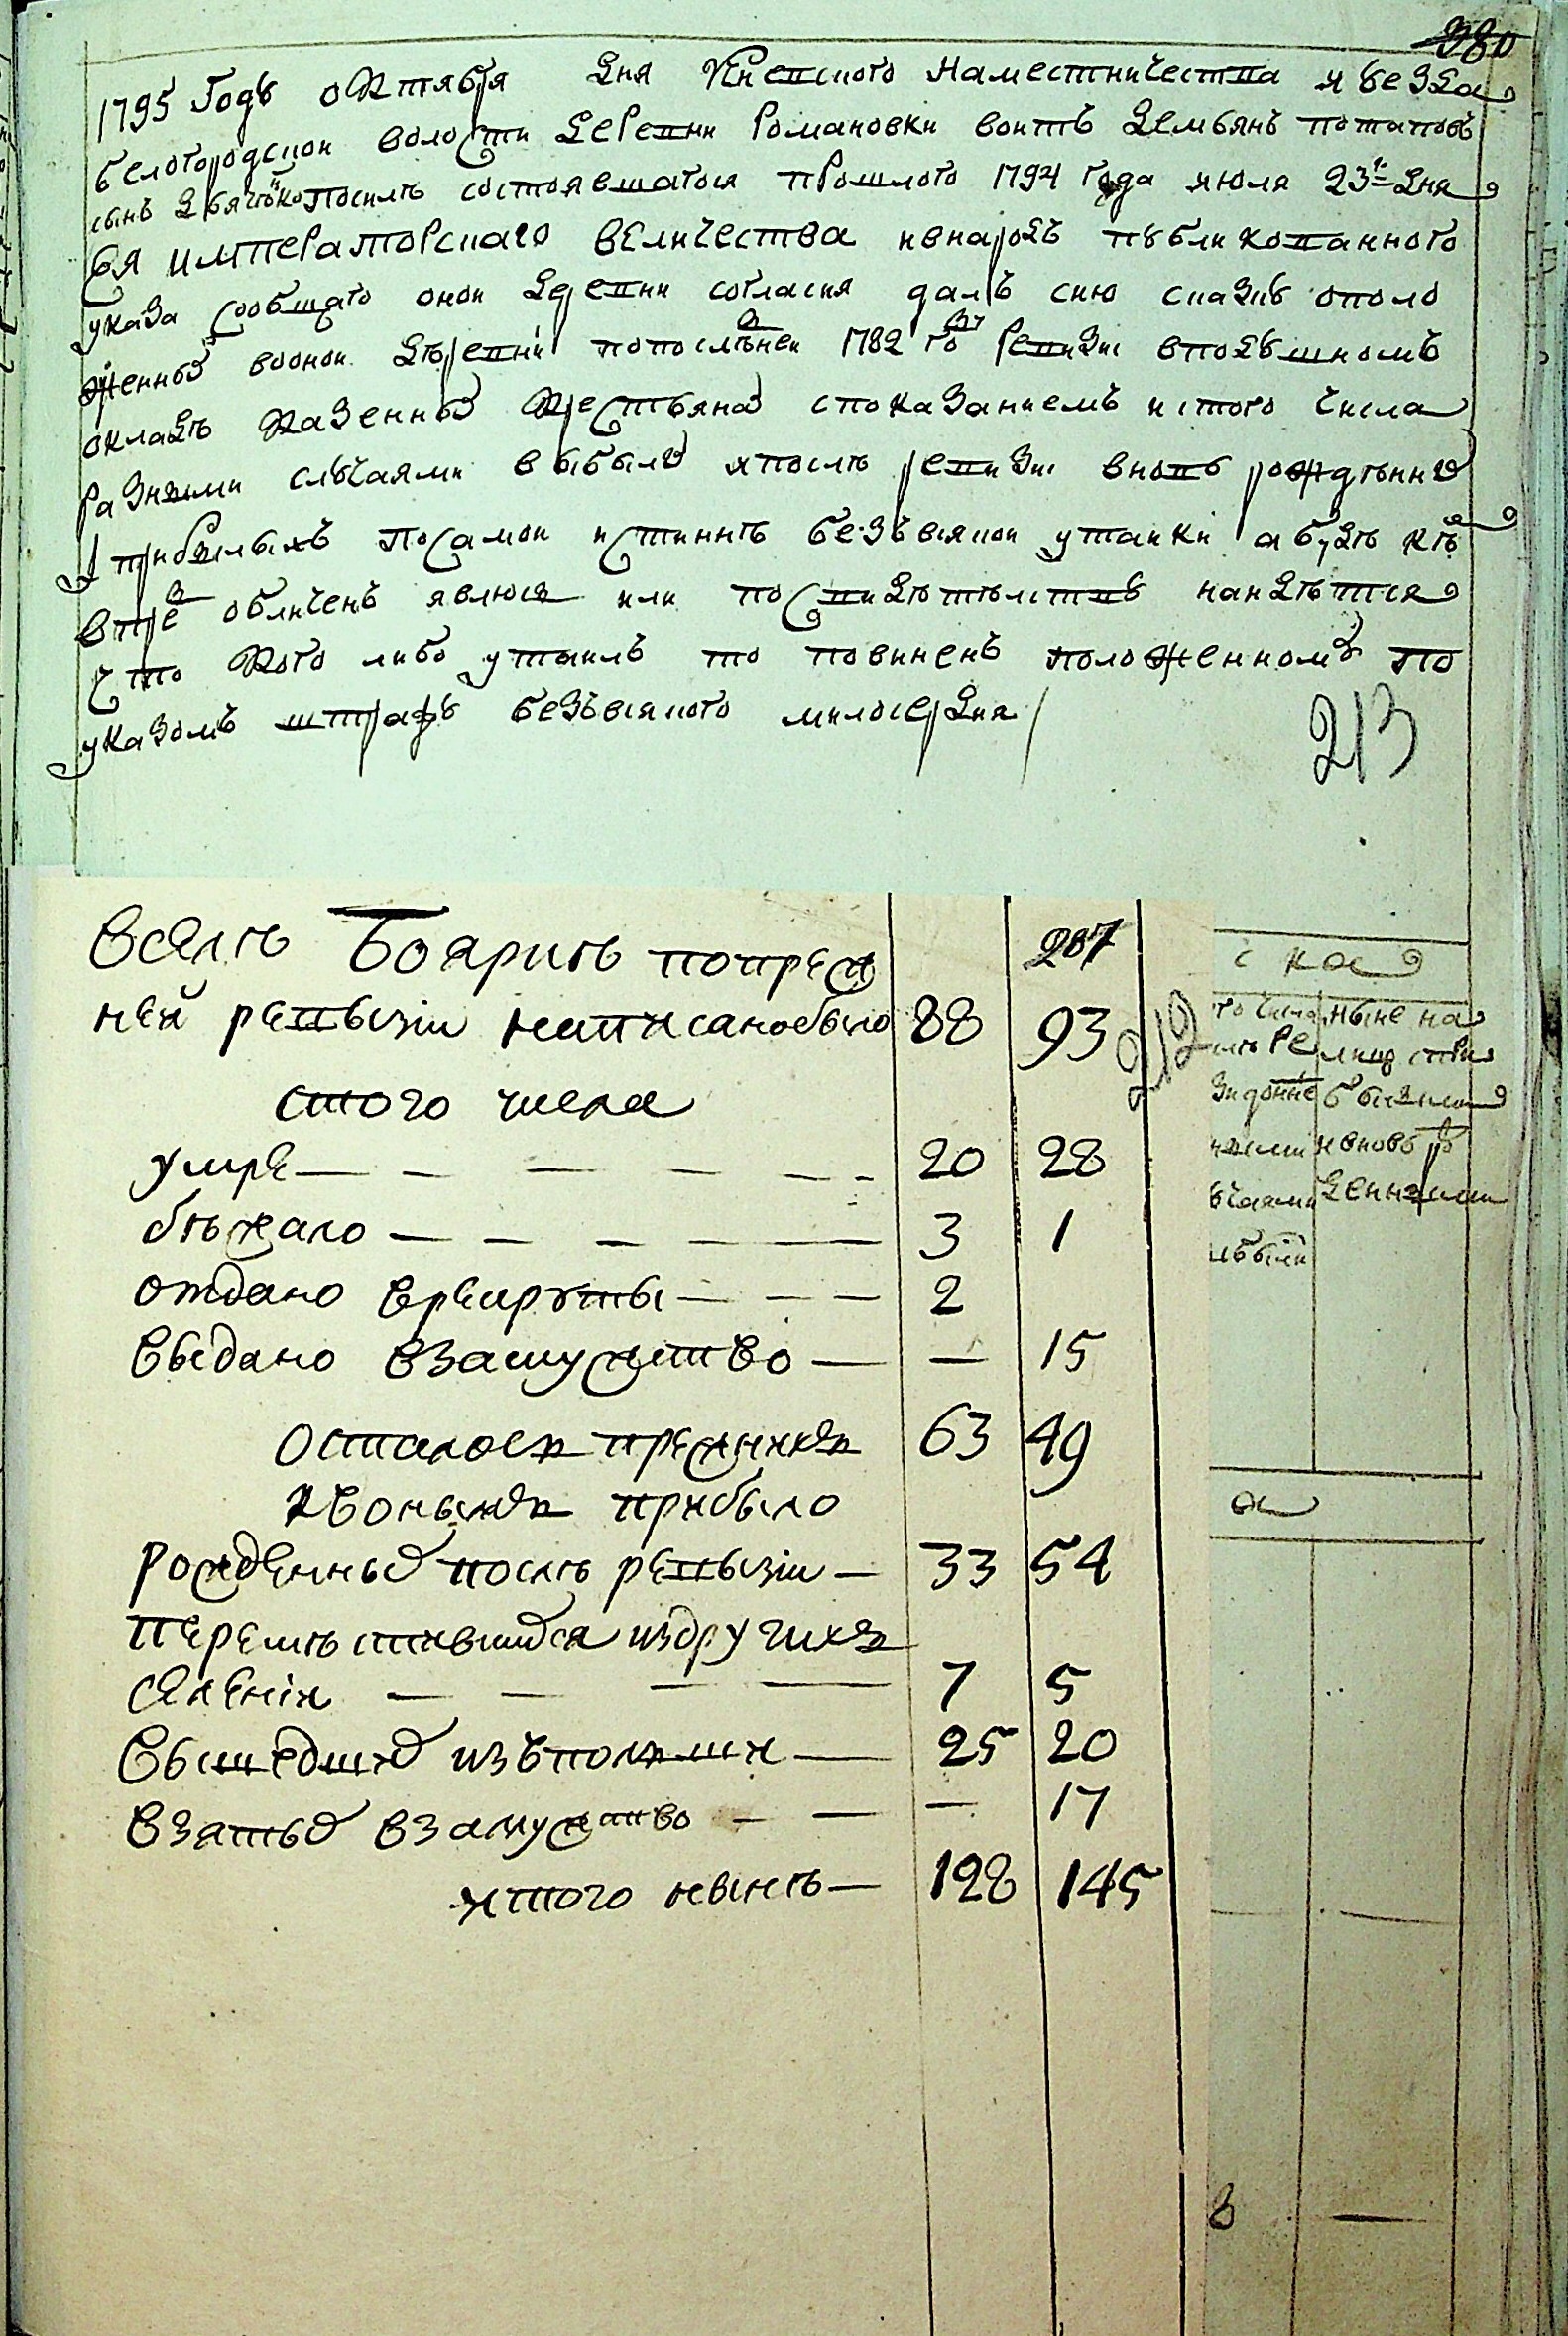 380
1795 Годѣ октября дня Киевского Наместничества и ѣезда
белогородскои волости деревни Романовки воитъ демьянъ потаповъ
сынъ посилѣ состоявшагося прошлого 1794 года июля 23го дня
Ея императорскаго величества ивнародъ пѣбликованного
указа собщаго онои деревни согласия далъ сию сказкѣ ополо
женныхъ вонои дѣревни попослѣднеи 1782го ревизии вподѣшномъ
окладѣ казенныхъ крестьянахъ споказаниемъ истого числа
разными слѣчаями выбылихъ ипослѣ ревизии вновь рождѣнныхъ
и прибылыхъ Посамои истиннѣ безъвсякои утаики абѣде кѣ
обличенъ явлюся или посвидѣтѣлствѣ наидѣтся
что кого либо утаилъ то повиненъ положенному по
указомъ штрафѣ безъвсякого милосердия
213
Вселѣ Бояркѣ попреж
ней ревызіи написанобыло 88 93
207
212
стого числа
умре 20 28
бѣжало 3 1
отдано врекруты 2
выдано взамужство — 15
осталось прежнихъ 63 49
ивоныхъ прибыло
рожденныхъ послѣ ревызіи 33 54
перемѣстившихся издругихъ
селеній 7 5
Вышедших изъполши 25 20
взятых взамужство — 17
итого нынѣ 128 145
ска
ныне на
лицо
вновь ро
денными